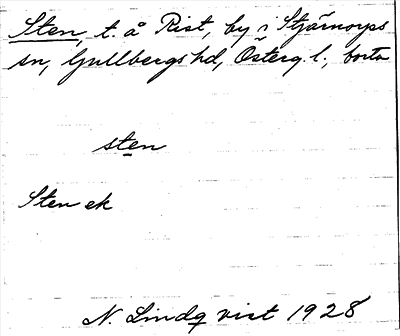 Sten, t. å Rist, by i Stjärnorps
sn, Gullbergs hd, Österg. l., borta
sten
Sten ek
N. Lindqvist 1928